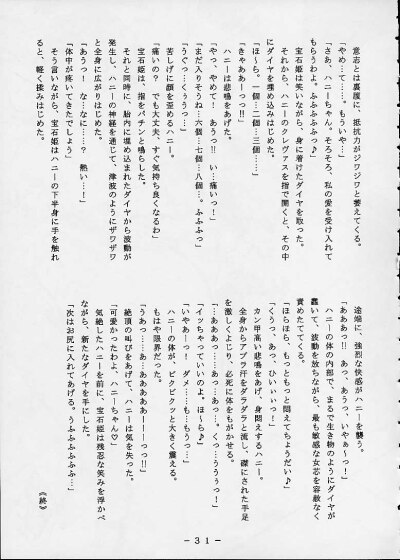 意志とは裏腹に、抵抗力がジワジワと萎えてくる。
「やめ…て……。もういや…」
「さあ、ハニーちゃん。そろそろ、私の愛を受け入れて
もらうわよ。ふふふふふっ♪」
宝石姫は笑いながら、身に着けたダイヤを取った。
それから、ハニーのクレヴァスを指で開くと、その中
にダイヤを埋め込みはじめた。
「ほ～ら。一個…二個…三個……」
「きゃああーっっ!!」
ハニーは悲鳴をあげた。
「やっ、やめて！　あうっ!!　い…痛いっ」
「まだ入りそうね…六個…七個…八個…。ふふふっ」
「うぐっ…くううっ…」
苦しげに顔を歪めるハニー。
「痛いの？　でも大丈夫、すぐ気持ち良くなるわ」
宝石姫は、指をパチンと鳴らした。
それと同時に、胎内に埋め込まれたダイヤから波動が
発生し、ハニーの神経を通じて、津波のようにザワザワ
と全身に広がりはじめた。
「あうっ！　な…なに……？　熱い…！」
「体中が疼いてきたでしょう」
そう言いながら、宝石姫はハニーの下半身に手を触れ
ると、軽く揉みはじめた。
途端に、強烈な快感がハニーを襲う。
「あああっ!!　あっ、あうっ、いやぁーっ！」
ハニーの体の内部で、まるで生き物のようにダイヤが
蠢いて、波動を放ちながら、最も敏感な女芯を容赦なく
責めたててくる。
「ほらほら、もっともっと悶えてちょうだい♪」
「くうっ、あっ、ひいぃぃっ！」
カン甲高い悲鳴をあげ、身悶えするハニー。
全身からアブラ汗をダラダラと流し、磔にされた手足
を激しくよじり、必死に体をもがかせる。
「…あああっ……あっ…あっ…。くっ…うううっ！」
「イッちゃっていいのよ。ほ～ら♪」
「いやぁーっ！　ダメ……も…もうっ…」
もはや限界だった。
ハニーの体が、ビクビクッと大きく震える。
「うあっ……あ…あああああーーーっっ!!」
絶頂の叫びをあげて、ハニーは気を失った。
「可愛かったわよ、ハニーちゃん♡」
気絶したハニーを前に、宝石姫は残忍な笑みを浮かべ
ながら、新たなダイヤを手にした。
「次はお尻に入れてあげる。うふふふふふ…」
《終》
－３１－